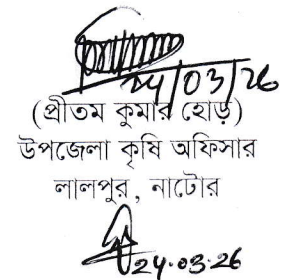 (প্রীতম কুমার হোড়)
উপজেলা কৃষি অফিসার
লালপুর, নাটোর
24.03.26